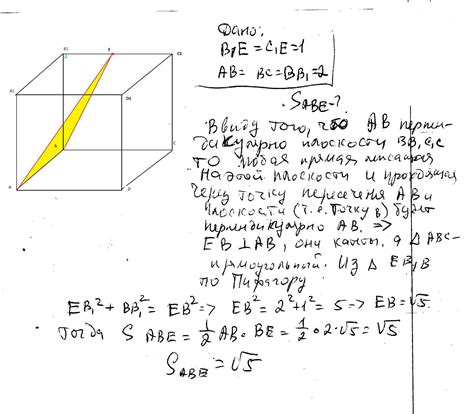 B1
E
C1
A1
D1
B
A
D
C
Дано:
B₁E = C₁E = 1
AB = BC = BB₁ = 2
S ABE - ?
Ввиду того, что AB перпен-
дикулярно плоскости BB₁C₁C
то любая прямая лежащая
на этой плоскости и проходящая
через точку пересечения AB и
плоскости (т.е. точку B) будет
перпендикулярно AB. =>
EB ⊥ AB, они катеты, а △ ABC -
прямоугольный. Из △ EB₁B
по Пифагору:
EB₁² + BB₁² = EB² => EB² = 2² + 1² = 5 => EB = √5
Тогда S ABE = 1/2 AB · BE = 1/2 · 2 · √5 = √5
S ABE = √5